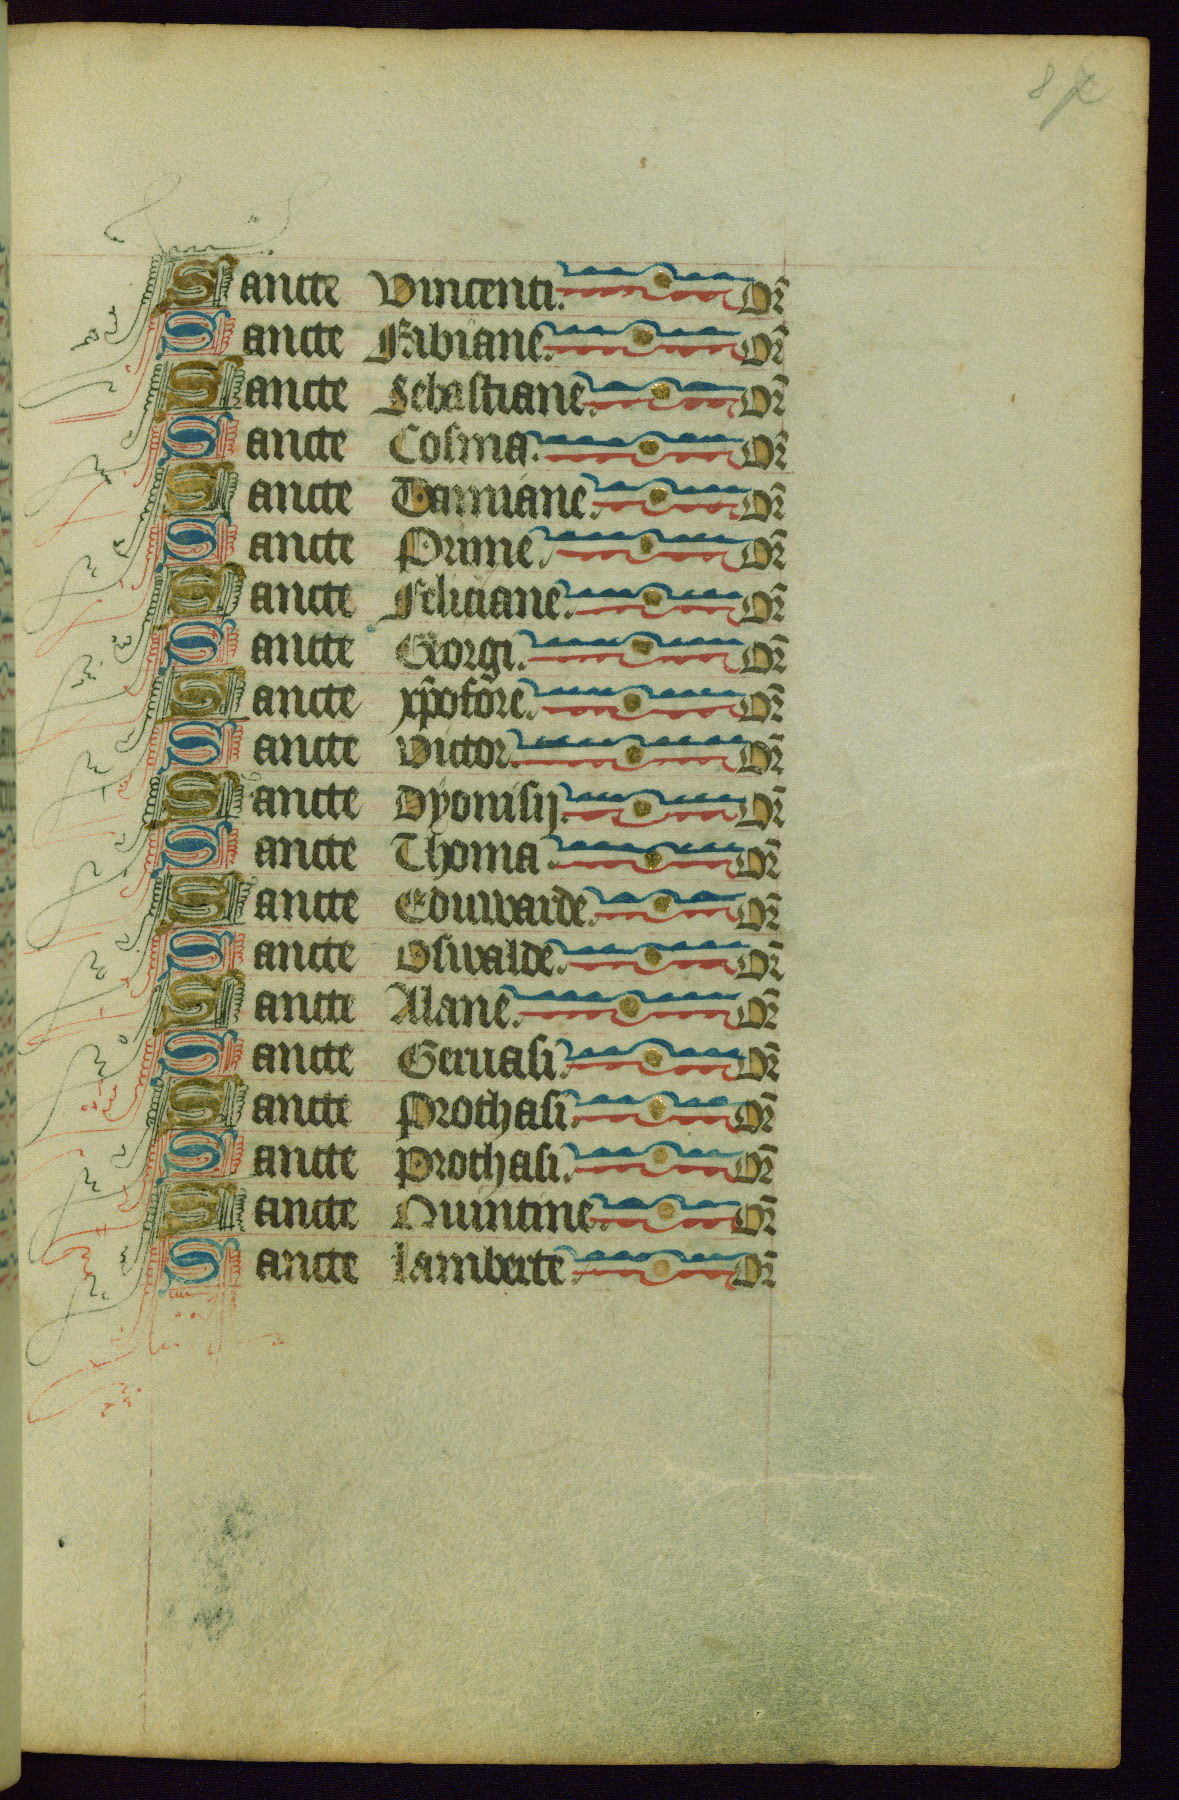 87
Sancte Vincenti. Or̄
Sancte Fabiane. Or̄
Sancte Sebastiane. Or̄
Sancte Cosma. Or̄
Sancte Damiane. Or̄
Sancte Prime. Or̄
Sancte Feliciane. Or̄
Sancte Georgi. Or̄
Sancte xp̄ofore. Or̄
Sancte Victor. Or̄
Sancte Dyonisij. Or̄
Sancte Thoma. Or̄
Sancte Eduwarde. Or̄
Sancte Oswalde. Or̄
Sancte Alane. Or̄
Sancte Geruasi. Or̄
Sancte Prothasi. Or̄
Sancte Prothasi. Or̄
Sancte Quintine. Or̄
Sancte lamberte. Or̄